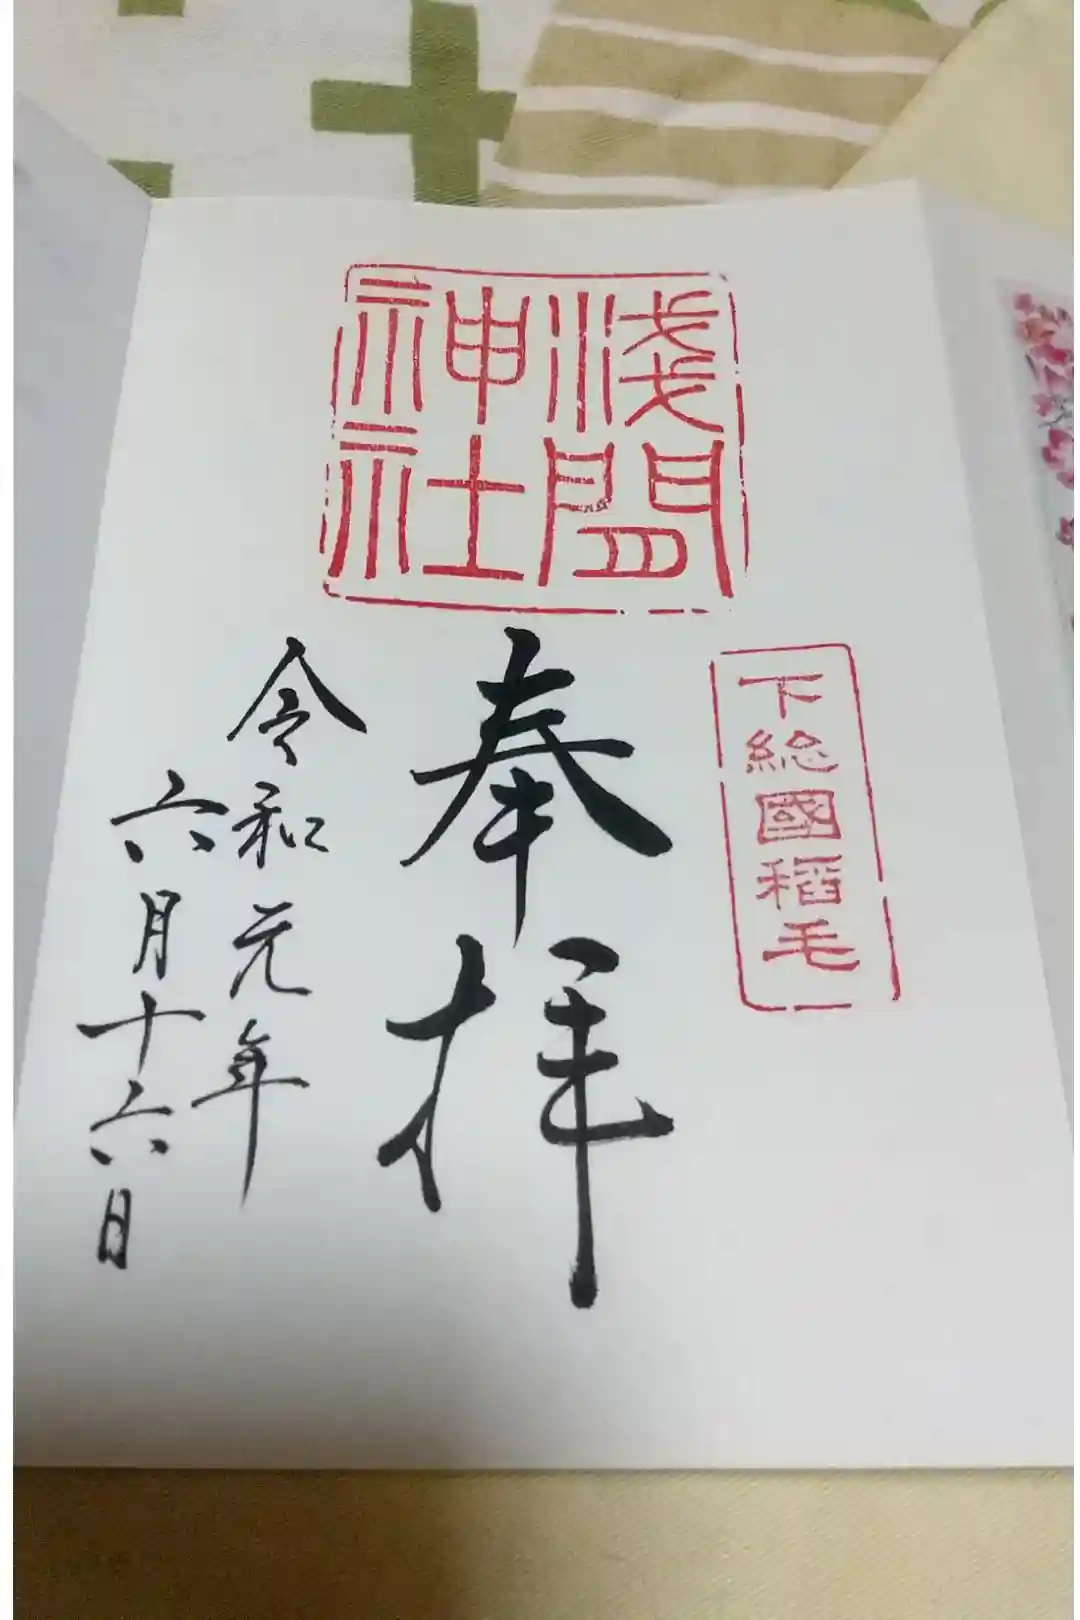 淺間
神社
下総國稻毛
奉拝
令和元年
六月十六日